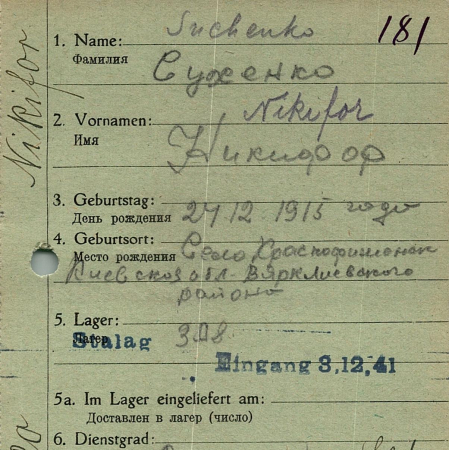 Suchenko
181
1. Name:
Фамилия
Сухенко
Nikifor
2. Vornamen:
Имя
Никифор
3. Geburtstag:
День рождения 24 12 1915 года
4. Geburtsort: Село
Место рождения
Киевской обл-
района
5. Lager:
Лагер
Stalag 308
Eingang 3.12.41
5a. Im Lager eingeliefert am:
Доставлен в лагер (число)
6. Dienstgrad:
Nikifor